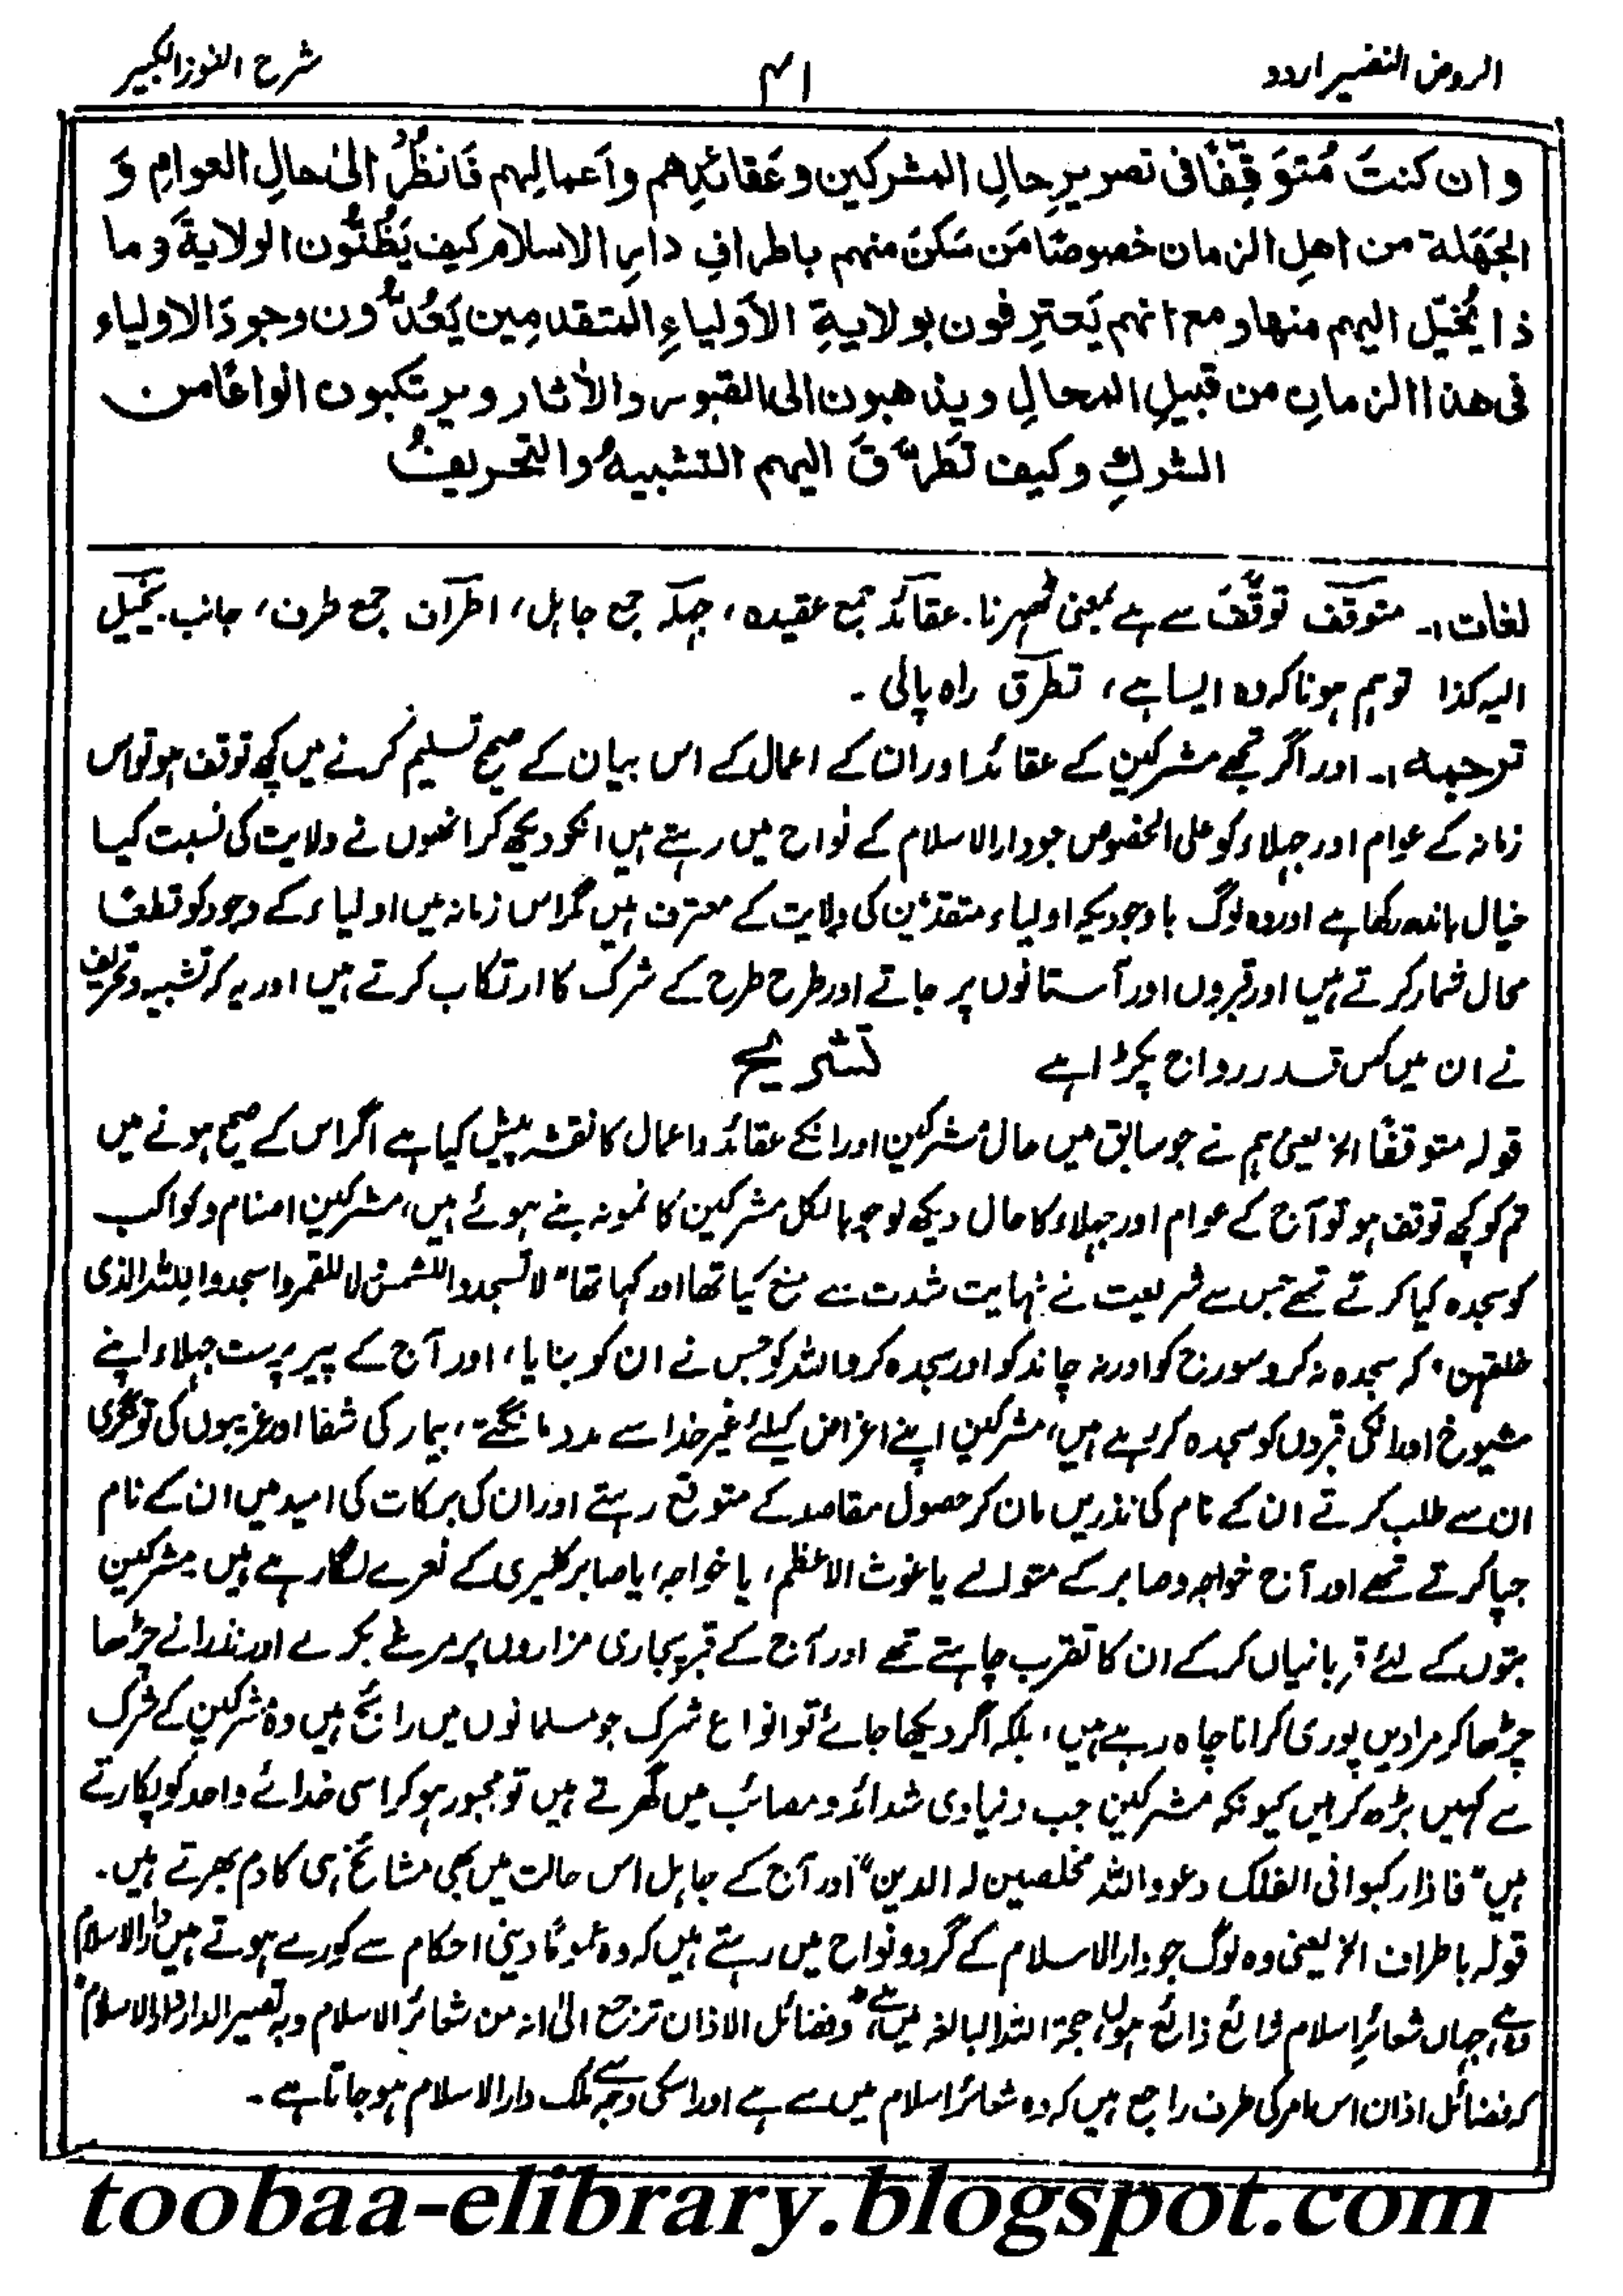 الروض النضیر اردو
۴۱
شرح الفوز الکبیر
وان کنتَ مُتوَقِّفًا فی تصویرِ حالِ المشرکین وعَقائدِهم واَعمالِهم فَانظُرْ الیٰ حالِ العوامِ وَ
الجَهَلة من اهلِ الزمان خصوصًا مَن سَکَنَ منهم باطرافِ دارِ الاسلام کیف یَظُنُّون الولایةَ وما
ذا یُخَیّل الیهم منها ومع انهم یَعترِفون بولایةِ الاَولیاءِ المتقدمین یَعُدُّون وجودَ الاولیاء
فی هذا الزمانِ من قبیلِ المحالِ ویذهبون الی القبور والاٰثار ویرتکبون انواعًا من
الشرکِ وکیف تَطَرَّقَ الیهم التشبیهُ والتحریفُ
لغات:۔ متوقف توقُّف سے ہے بمعنی ٹھہرنا۔ عقائد جمع عقیدہ، جہلہ جمع جاہل، اطراف جمع طرف، جانب۔ یخیل
الیہ کذا توہم ہونا کہ وہ ایسا ہے، تطرق راہ پالی ۔
ترجمہ:۔ اور اگر تجھے مشرکین کے عقائد اور ان کے اعمال کے اس بیان کے صحیح تسلیم کرنے میں کچھ توقف ہو تو اس
زمانہ کے عوام اور جہلاء کو علی الخصوص جو دارالاسلام کے نواح میں رہتے ہیں انکو دیکھ کر انھوں نے ولایت کی نسبت کیا
خیال باندھ رکھا ہے اور وہ لوگ باوجودیکہ اولیاء متقدمین کی ولایت کے معترف ہیں مگر اس زمانہ میں اولیاء کے وجود کو قطعًا
محال شمار کرتے ہیں اور قبروں اور آستانوں پر جاتے اور طرح طرح کے شرک کا ارتکاب کرتے ہیں اور یہ کہ تشبیہ وتحریف
نے ان میں کس قدر رواج پکڑا ہے تشریح
قولہ متوقفًا الخ یعنی ہم نے جو سابق میں حال مشرکین اور انکے عقائد واعمال کا نقشہ پیش کیا ہے اگر اس کے صحیح ہونے میں
تم کو کچھ توقف ہو تو آج کے عوام اور جہلاء کا حال دیکھ لو جو بالکل مشرکین کا نمونہ بنے ہوئے ہیں، مشرکین اصنام وکواکب
کو سجدہ کیا کرتے تھے جس سے شریعت نے نہایت شدت سے منع کیا تھا اور کہا تھا "لا تسجدوا للشمس ولا للقمر واسجدوا للّٰہ الذی
خلقہن" کہ سجدہ نہ کرو سورج کو اور نہ چاند کو اور سجدہ کرو اللہ کو جس نے ان کو بنایا، اور آج کے پیر پرست جہلاء اپنے
شیوخ اور انکی قبروں کو سجدہ کر رہے ہیں، مشرکین اپنے اغراض کیلئے غیر خدا سے مدد مانگتے، بیمار کی شفا اور غریبوں کی تونگری
ان سے طلب کرتے ان کے نام کی نذریں مان کر حصول مقاصد کے متوقع رہتے اور ان کی برکات کی امید میں ان کے نام
جپا کرتے تھے اور آج خواجہ وصابر کے متوالے یا غوث الاعظم، یا خواجہ، یا صابر کلیری کے نعرے لگا رہے ہیں، مشرکین
بتوں کے لئے قربانیاں کر کے ان کا تقرب چاہتے تھے اور آج کے قبر پجاری مزاروں پر مرغے بکرے اور نذرانے چڑھا
چڑھا کر مرادیں پوری کرانا چاہ رہے ہیں، بلکہ اگر دیکھا جائے تو انواع شرک جو مسلمانوں میں رائج ہیں وہ مشرکین کے شرک
سے کہیں بڑھ کر ہیں کیونکہ مشرکین جب دنیاوی شدائد ومصائب میں گھرتے ہیں تو مجبور ہو کر اسی خدائے واحد کو پکارتے
ہیں "فاذا رکبوا فی الفلک دعوا اللّٰہ مخلصین لہ الدین" اور آج کے جاہل اس حالت میں بھی مشائخ ہی کا دم بھرتے ہیں۔
قولہ باطراف الخ یعنی وہ لوگ جو دارالاسلام کے گردونواح میں رہتے ہیں کہ وہ عمومًا دینی احکام سے کورے ہوتے ہیں دارالاسلام
وہ ہے جہاں شعائرِ اسلام شائع ذائع ہوں، حجۃ اللہ البالغہ میں ہے "وفضائل الاذان ترجع الیٰ انہ من شعائر الاسلام وبہ تصیر الدار دارالاسلام"
کہ فضائل اذان اس امر کی طرف راجع ہیں کہ وہ شعائر اسلام میں سے ہے اور اسکی وجہ سے ملک دارالاسلام ہو جاتا ہے ۔
toobaa-elibrary.blogspot.com